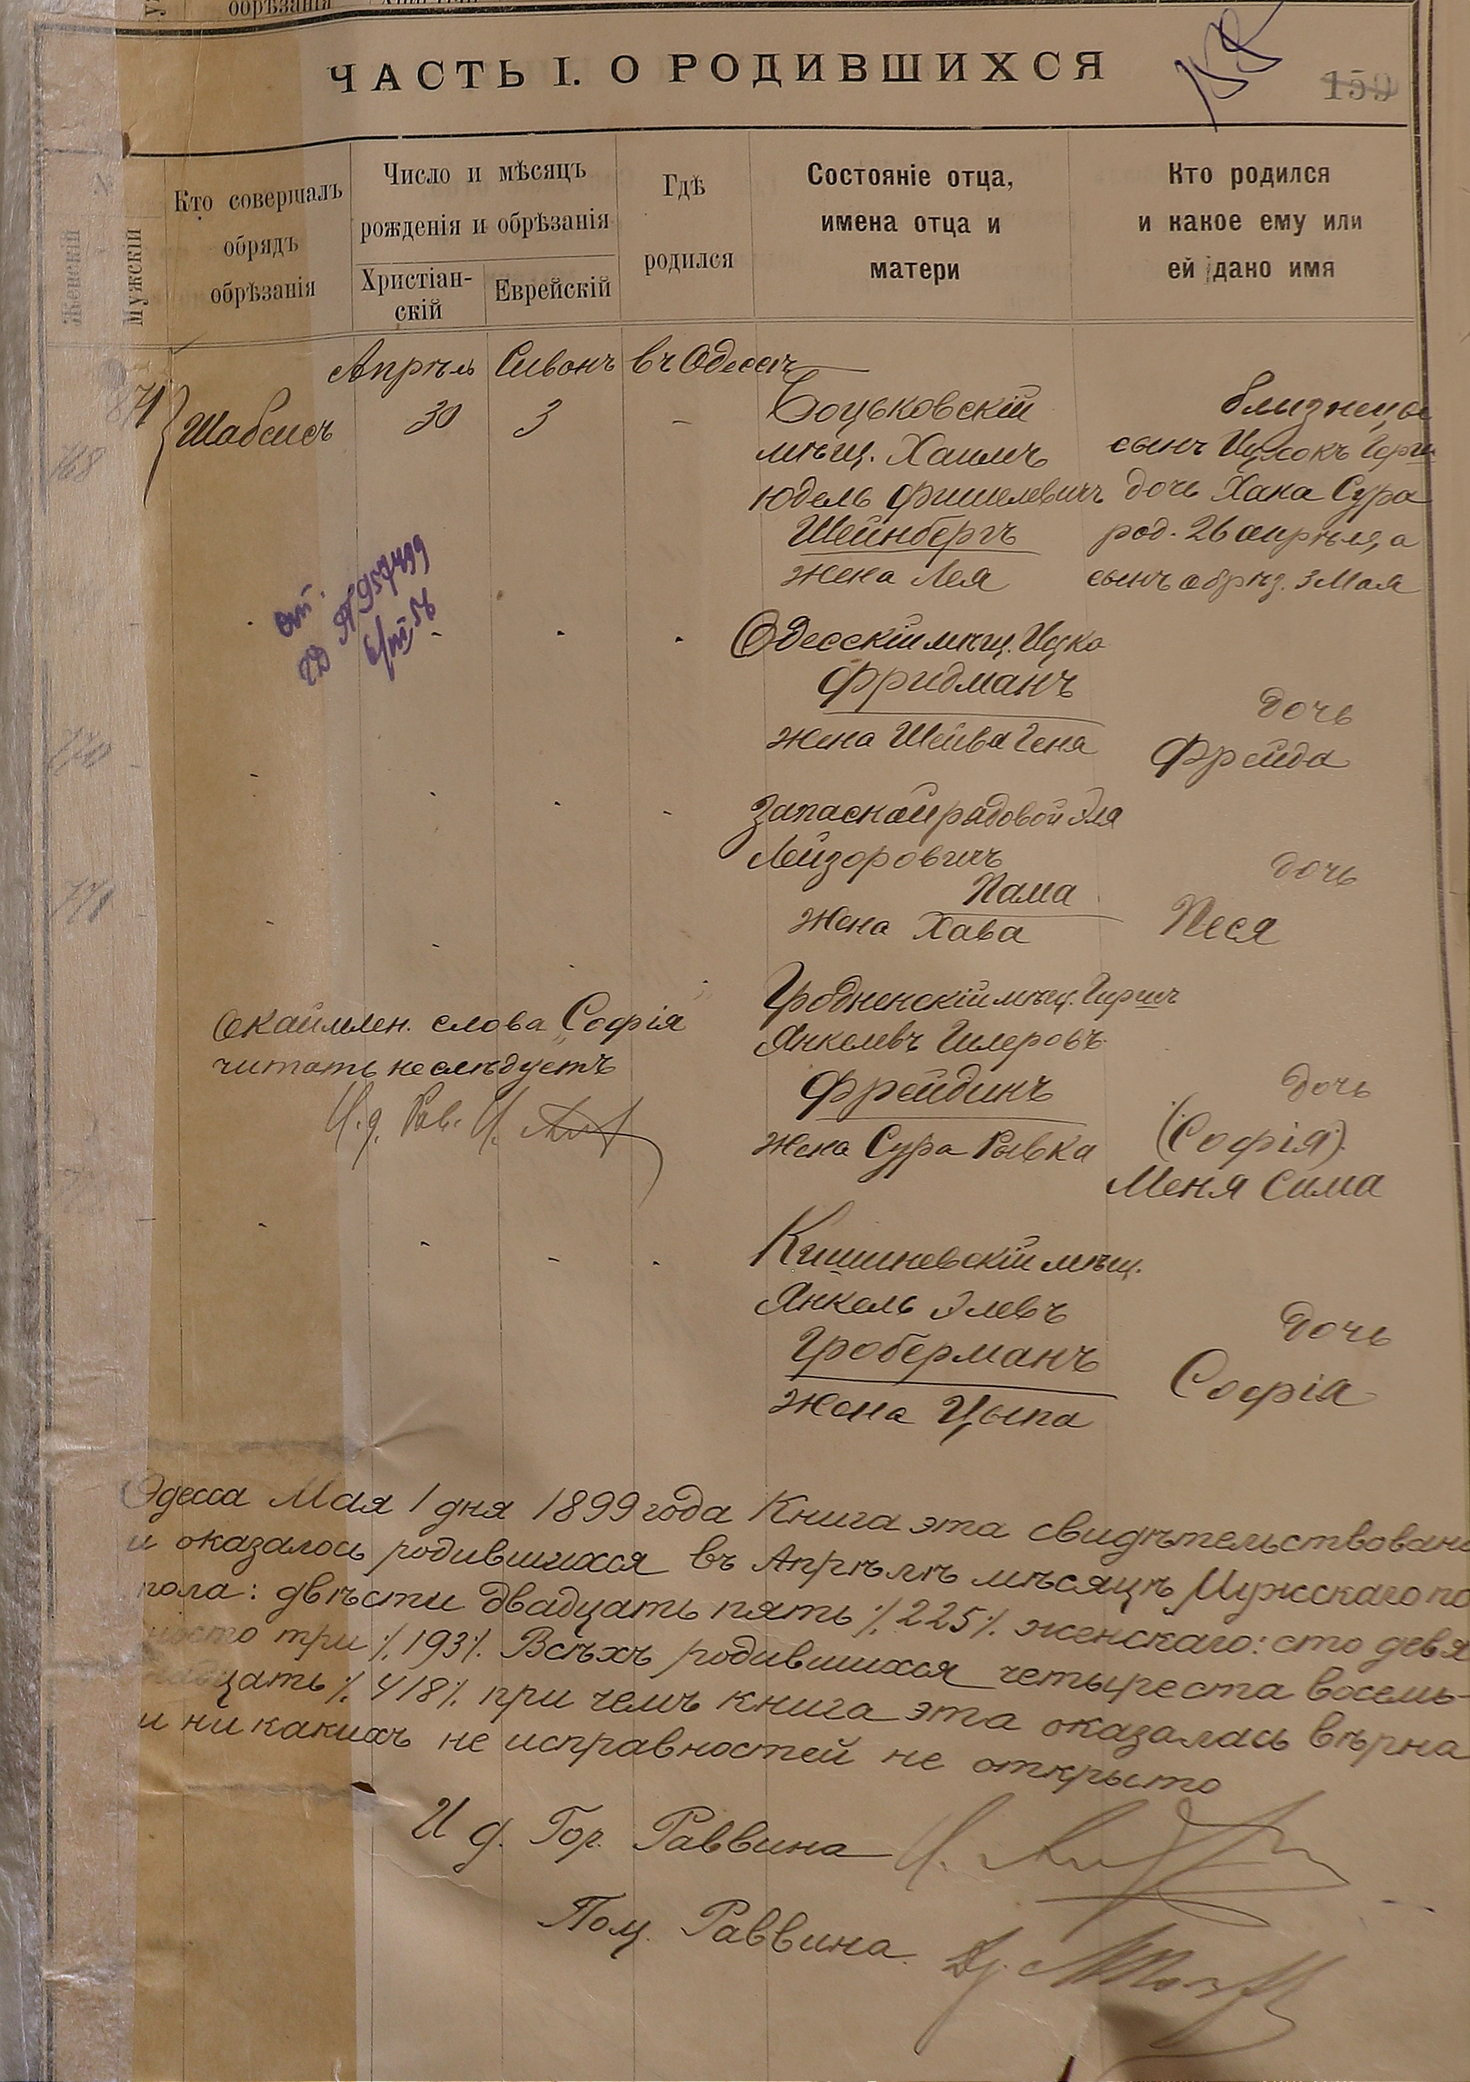 обрѣзанія
ЧАСТЬ I. О РОДИВШИХСЯ
159
Женскій
Мужскій
Кто совершалъ
обрядъ
обрѣзанія
Число и мѣсяцъ
рожденія и обрѣзанія
Христіан-
скій
Еврейскій
Гдѣ
родился
Состояніе отца,
имена отца и
матери
Кто родился
и какое ему или
ей дано имя
Апрѣль Сивонъ въ Одессѣ
168
Шабсисъ
30
3
Боцьковскій
мѣщ. Хаимъ
Юдель Фишелевичъ
Шейнбергъ
жена Лея
близнецы
сынъ Ицхокъ
дочь Хана Сура
род. 26 апрѣля, а
сынъ обрѣз. 3 Мая
Одесскій мѣщ. Ицко
Фридманъ
жена Шейва Геня
дочь
Фрейда
170
Запасной рядовой Эля
Лейзоровичъ
Пама
жена Хава
дочь
Песя
171
Гродненскій мѣщ. Гиршъ
Янкелевъ Гилеровъ
Фрейдинъ
жена Сура Рывка
дочь
(Софія).
Меня Сима
Окаймлен. слова „Софія
читать не слѣдуетъ
И. д. Рав. И.
Кишиневскій мѣщ.
Янкель Элевъ
Гроберманъ
жена Цыпа
дочь
Софія
Одесса Мая 1 дня 1899 года Книга эта свидѣтельствована
и оказалось родившихся въ Апрѣлѣ мѣсяцѣ Мужскаго по
пола: двѣсти двадцать пять ٪ 225 ٪. женскаго: сто девя
носто три ٪ 193 ٪. Всѣхъ родившихся четыреста восемь-
надцать ٪ 418 ٪. при чемъ книга эта оказалась вѣрна
и ни какихъ не исправностей не открыто
И д. Гор. Раввина
Пом. Раввина